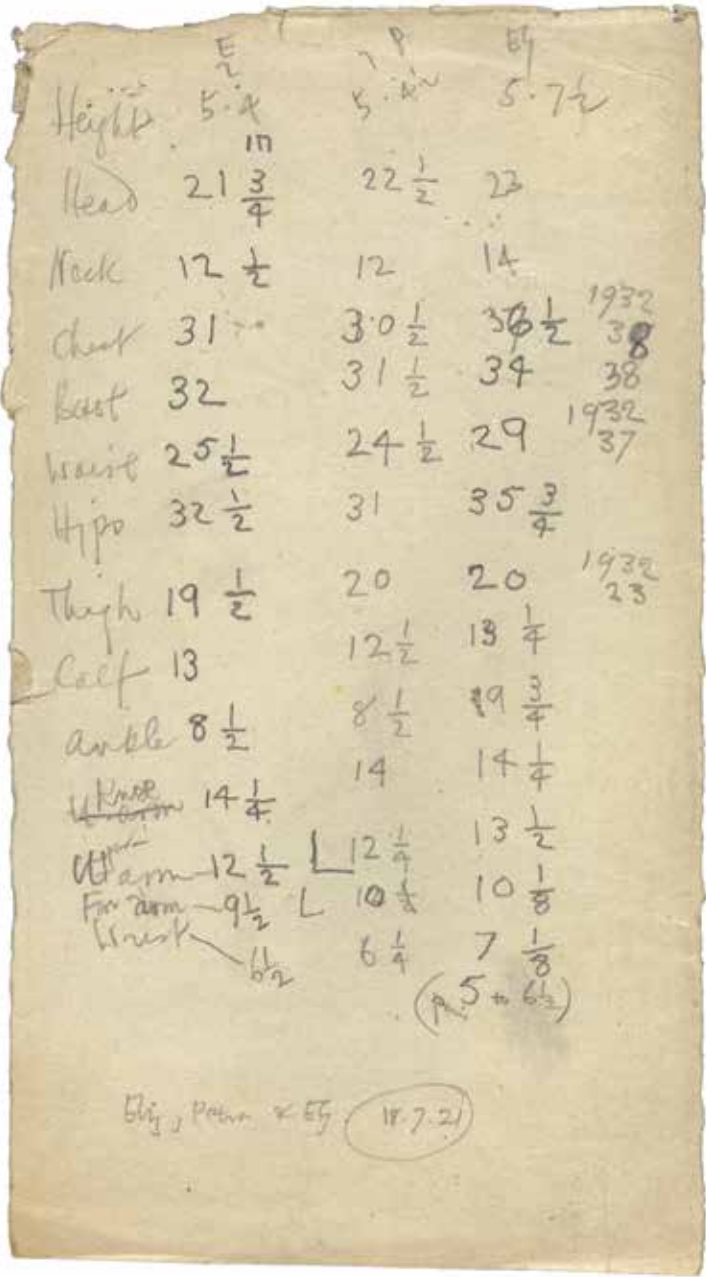 E P EG
2
Height 5.4 5.4 5.7½
in
Head 21 ¾ 22 ½ 23
Neck 12 ½ 12 14
1932
Chest 31 30 ½ 36 ½ 38
Bust 32 31 ½ 34 38
1932
Waist 25 ½ 24 ½ 29 37
Hips 32 ½ 31 35 ¾
1932
Thigh 19 ½ 20 20 23
Calf 13 12 ½ 13 ¼
Ankle 8 ½ 8 ½ 9 ¾
Knee 14 ¼ 14 14 ¼
Up arm 12 ½ L 12 ¼ 13 ½
Fore arm 9½ L 10 10 ⅛
Wrist 6½ 6 ¼ 7 ⅛
(p. 5 to 6½)
& EG 18.7.21